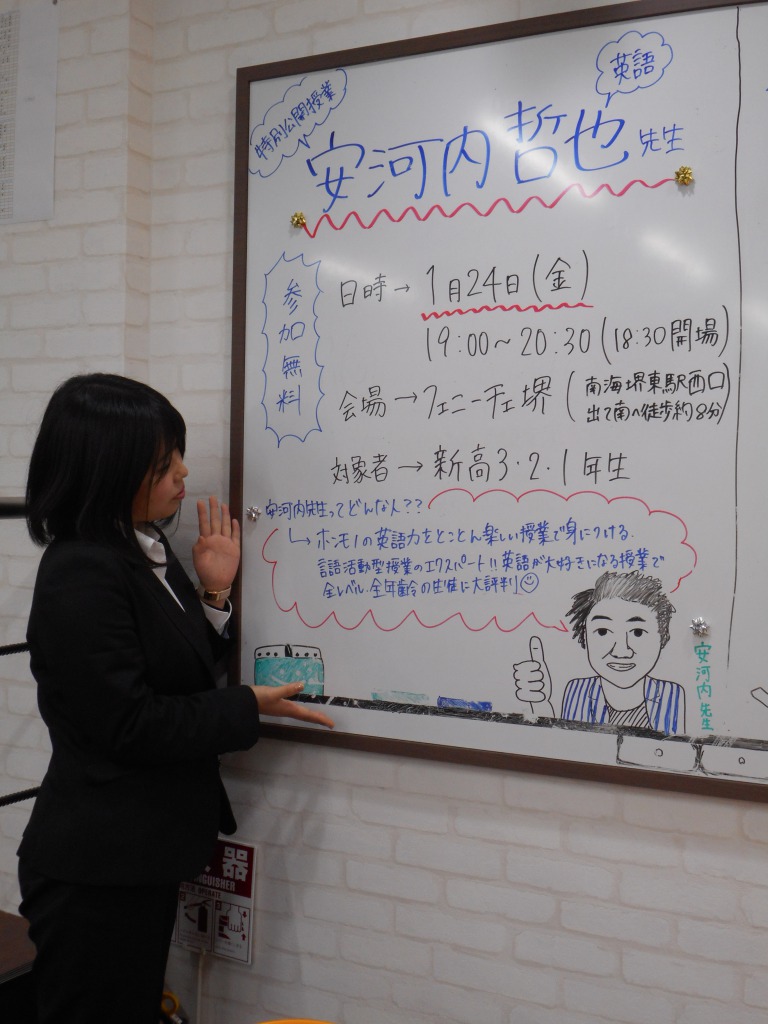 特別公開授業
英語
安河内哲也先生
参加無料
日時→1月24日(金)
19:00~20:30(18:30開場)
会場→フェニーチェ堺(南海堺東駅西口
出て南へ徒歩約8分)
対象者→新高3・2・1年生
安河内先生ってどんな人??
↳ホンモノの英語力をとことん楽しい授業で身につける.
言語活動型授業のエクスパート!!英語が大好きになる授業で
全レベル・全年齢の生徒に大評判☺
安河内先生
器